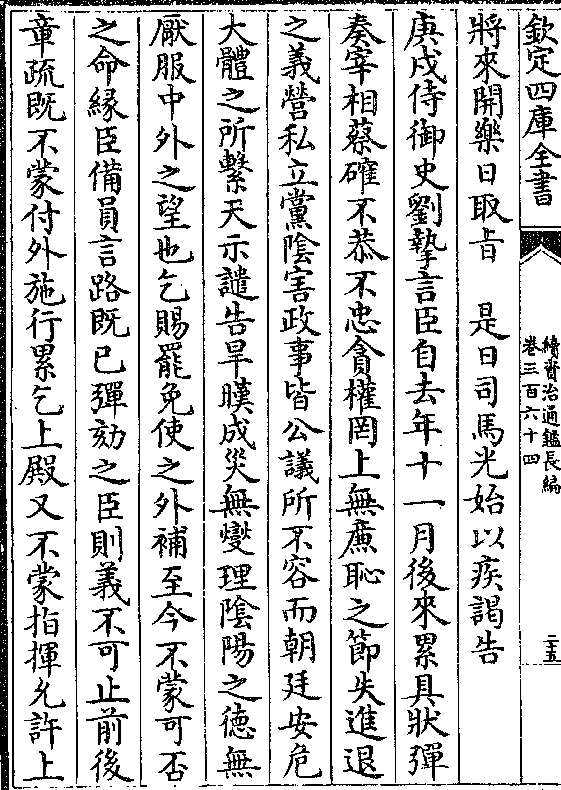 欽定四庫全書
續資治通鑑長編
卷三百六十四
二十五
將來開樂日取旨　是日司馬光始以疾謁告
庚戌侍御史劉摯言臣自去年十一月後來累具狀彈
奏宰相蔡確不恭不忠貪權罔上無㢘恥之節失進退
之義營私立黨陰害政事皆公議所不容而朝廷安危
大體之所繫天示譴告旱暵成災無燮理陰陽之德無
厭服中外之望也乞賜罷免使之外補至今不蒙可否
之命緣臣備員言路既已彈劾之臣則義不可止前後
章疏既不蒙付外施行累乞上殿又不蒙指揮允許上